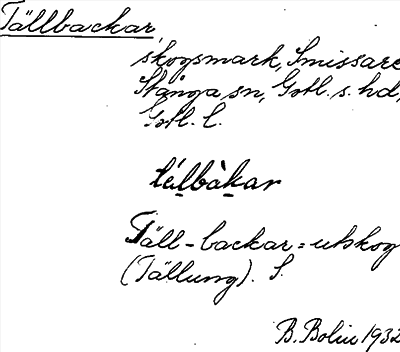 Tällbackar,
skogsmark, Smissare
Stånga sn, Gotl. s. hd,
Gotl. l.
tä́lbàkar
Täll-backar = utskog
(Tällung). S.
B. Bolin 1932